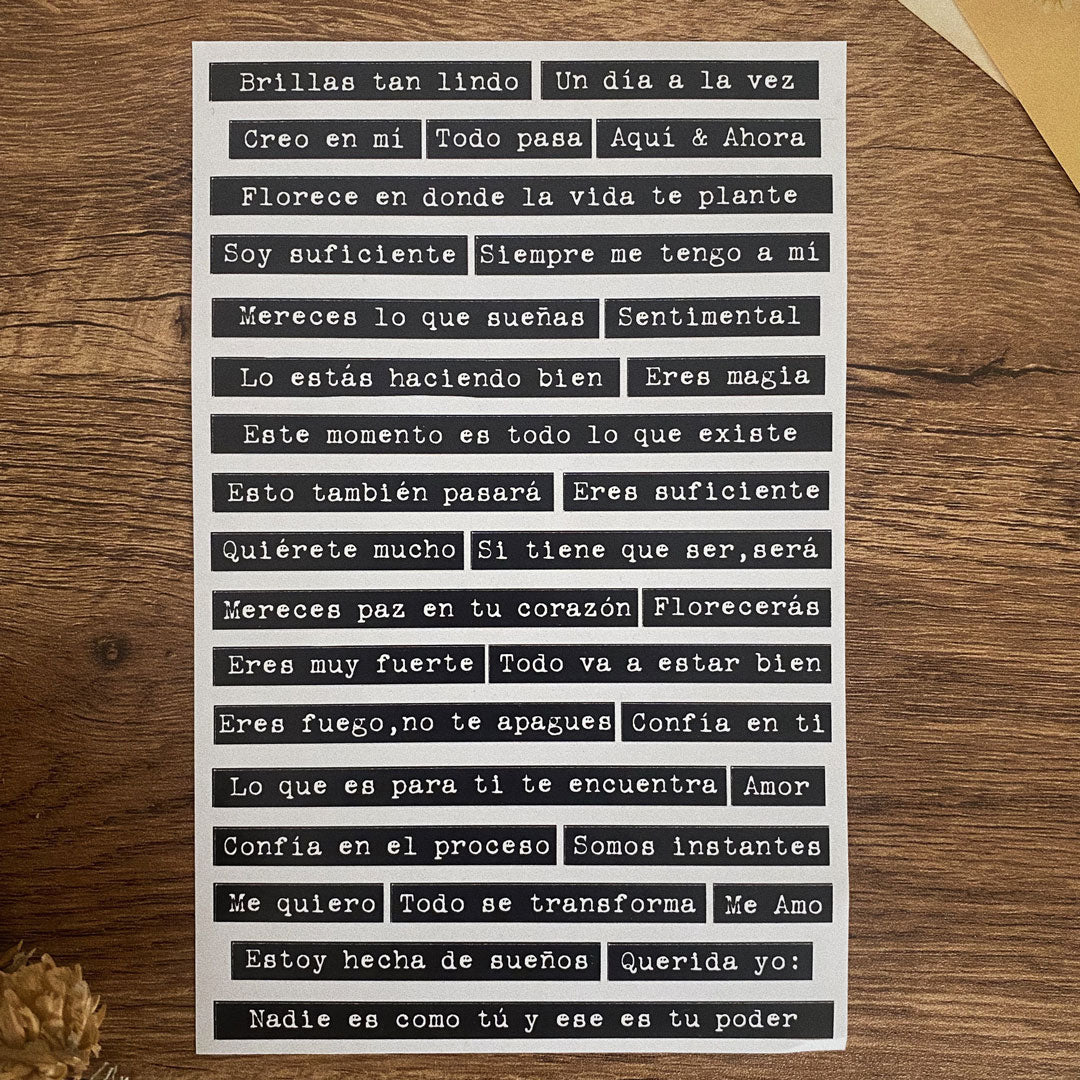 Brillas tan lindo Un día a la vez
Creo en mí Todo pasa Aquí & Ahora
Florece en donde la vida te plante
Soy suficiente Siempre me tengo a mí
Mereces lo que sueñas Sentimental
Lo estás haciendo bien Eres magia
Este momento es todo lo que existe
Esto también pasará Eres suficiente
Quiérete mucho Si tiene que ser,será
Mereces paz en tu corazón Florecerás
Eres muy fuerte Todo va a estar bien
Eres fuego,no te apagues Confía en ti
Lo que es para ti te encuentra Amor
Confía en el proceso Somos instantes
Me quiero Todo se transforma Me Amo
Estoy hecha de sueños Querida yo:
Nadie es como tú y ese es tu poder